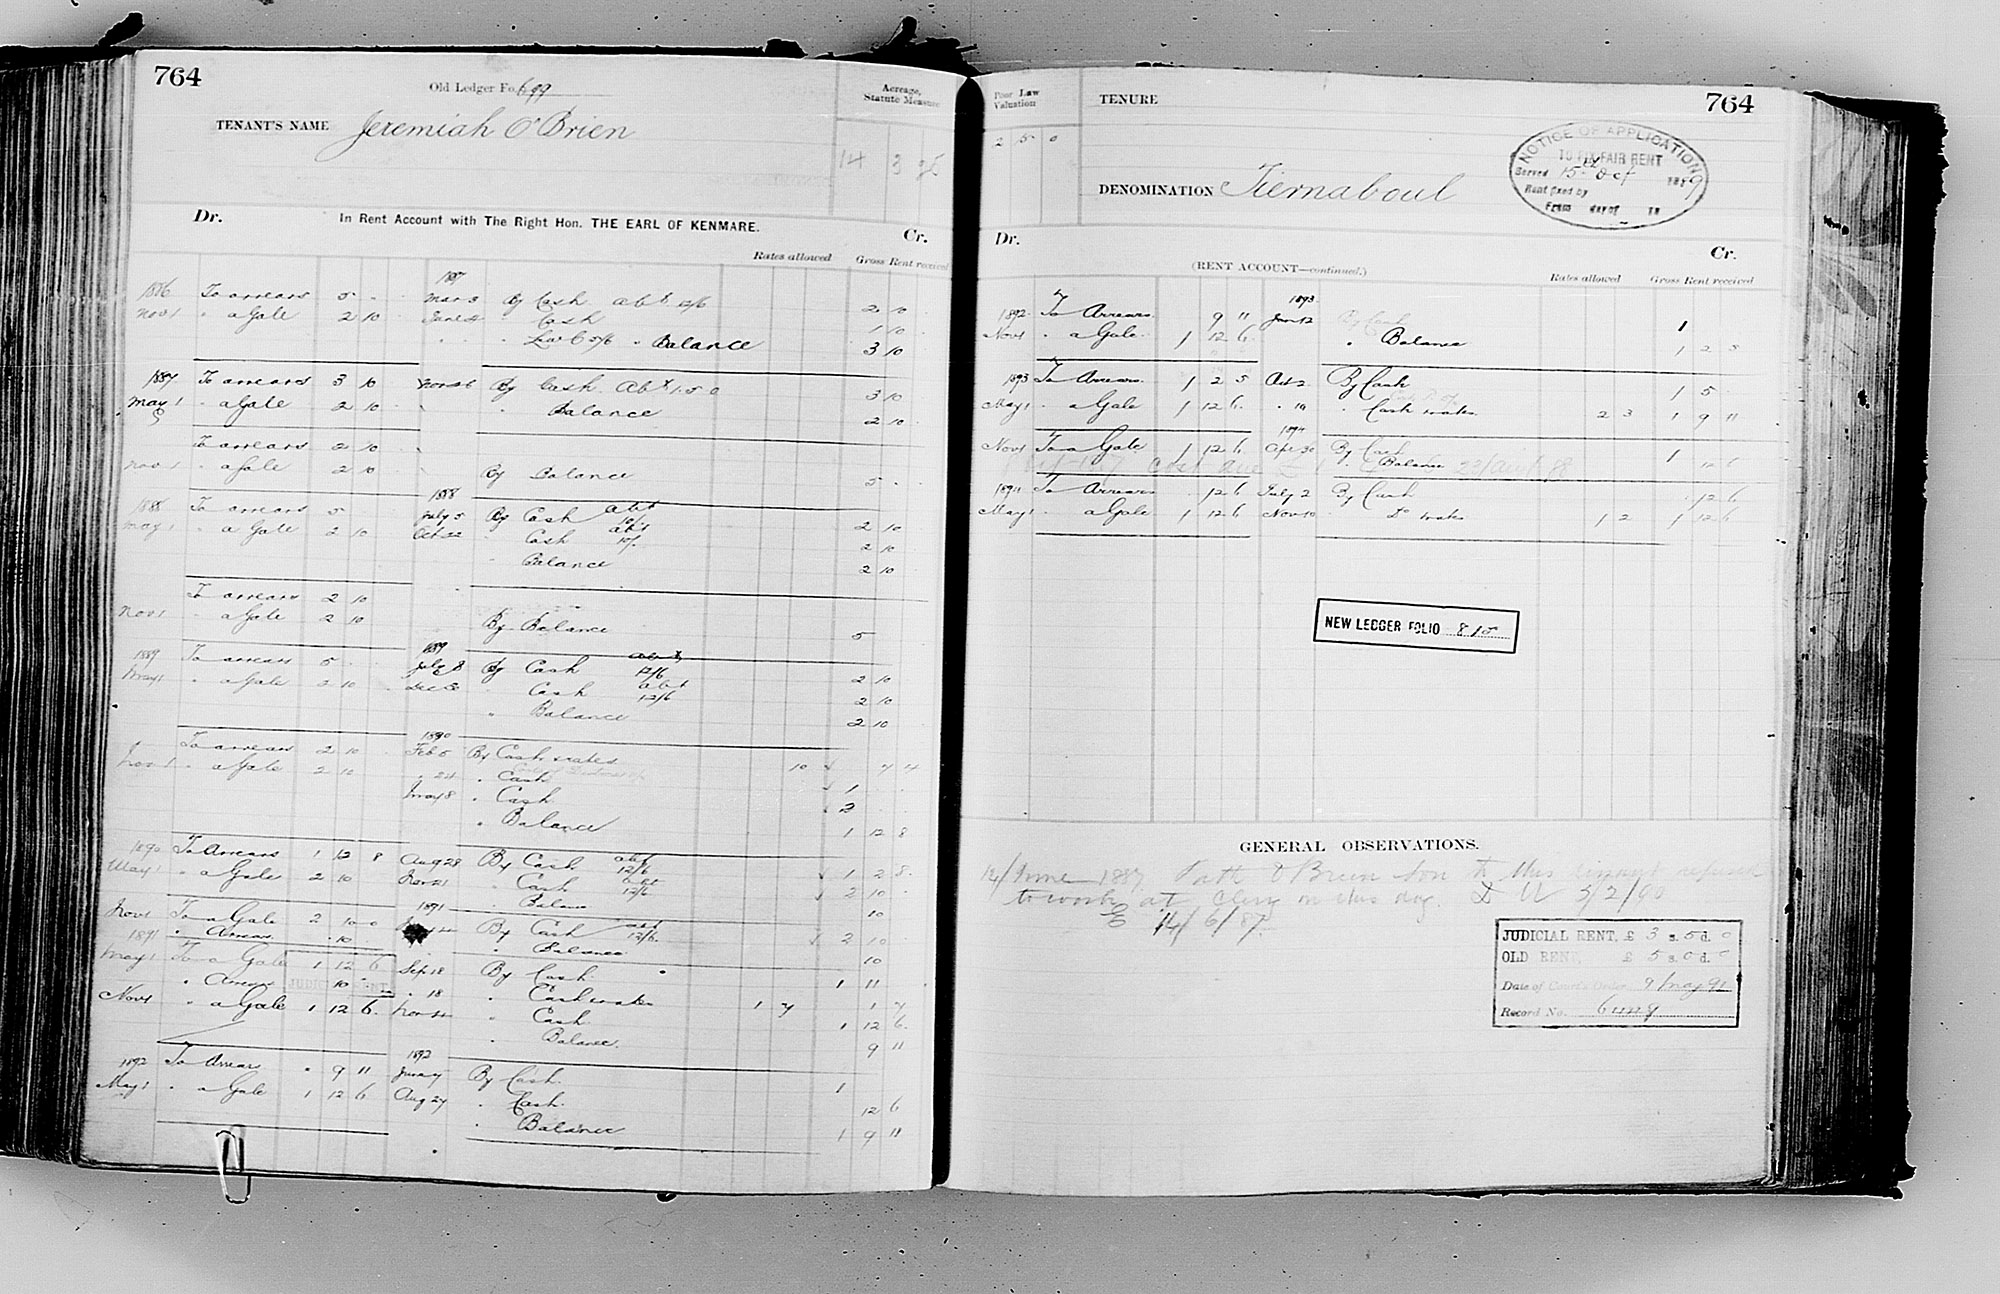 764
Old Ledger Fo. 699
Acreage, Statute Measure
TENANT'S NAME Jeremiah O'Brien
14 3
Dr. In Rent Account with The Right Hon. THE EARL OF KENMARE. Cr.
Rates allowed Gross Rent received
1887
1886 To arrears 5 - - Mar 3 By Cash abt 12/6 2 10
Nov 1 " a Gale 2 10 June " Cash 1 10
" Balance 3 10
1887 To arrears 3 10 Nov 26 By Cash Abt 1.5.0 3 10
May 1 " a Gale 2 10 " Balance 2 10
To arrears 2 10
Nov 1 " a Gale 2 10 By Balance 5 - -
1888
1888 To arrears 5 July 5 By Cash abt 10/- 2 10
May 1 " a Gale 2 10 Oct 22 " Cash abt 10/- 2 10
Balance 2 10
To arrears 2 10
Nov 1 " a Gale 2 10 By Balance 5
1889
1889 To arrears 5 July 8 By Cash abt 12/6 2 10
May 1 " a Gale 2 10 Dec " Cash abt 12/6 2 10
" Balance 2 10
1890
To arrears 2 10 Feb 5 By Cash & rates 10 7 4
Nov 1 " a Gale 2 10 " 24 " Cash 1
May 8 " Cash 2
" Balance 1 12 8
1890 To Arrears 1 12 8 Aug 28 By Cash abt 12/6 1 2 8
May 1 " a Gale 2 10 Nov 21 " Cash abt 12/6 2 10
" Balance 10
1891
Nov 1 To a Gale 2 10 0 By Cash abt 12/6 2 10
" Arrears 10 " Balance 10
1891
May 1 To a Gale 1 12 6 Sep 18 By Cash 1 11
" Arrears 10 " 18 " Cash & rates 1 7 1 7
JUDICIAL RENT
Nov 1 " a Gale 1 12 6 Nov " Cash 1 12 6
" Balance 9 11
1892
1892 To Arrears " 9 11 Jun By Cash 1
May 1 " a Gale 1 12 6 Aug 27 " Cash 12 6
" Balance 1 9 11
Poor Law Valuation
2 5 0
TENURE
764
DENOMINATION Tiernaboul
NOTICE OF APPLICATION
TO FIX FAIR RENT
Served 15th Oct 1889
Rent fixed by
From day of 18
Dr. (RENT ACCOUNT—continued.) Cr.
Rates allowed Gross Rent received
1893
1892 To Arrears 9 11 Jan 12 By Cash 1
Nov 1 " a Gale 1 12 6 " Balance 1 2 5
1893 To Arrears 1 2 5 Oct 2 By Cash 1 5
May 1 " a Gale 1 12 6 " 19 " Cash & rates 2 3 1 9 11
1894
Nov 1 To a Gale 1 12 6 Apr 30 By Cash 1
" Balance 12 6
1894 To Arrears 12 6 July 2 By Cash 12 6
May 1 " a Gale 1 12 6 Nov 10 " Do & rates 1 2 1 12 6
NEW LEDGER FOLIO 815
GENERAL OBSERVATIONS.
14/June 1887 Patk O'Brien son to this tenant refused
to work at Clery on this day. 3/2/90
14/6/87
JUDICIAL RENT, £ 3 s. 5 d. 0
OLD RENT, £ 5 s. 0 d. 0
Date of Court's Order 9 May 91
Record No.